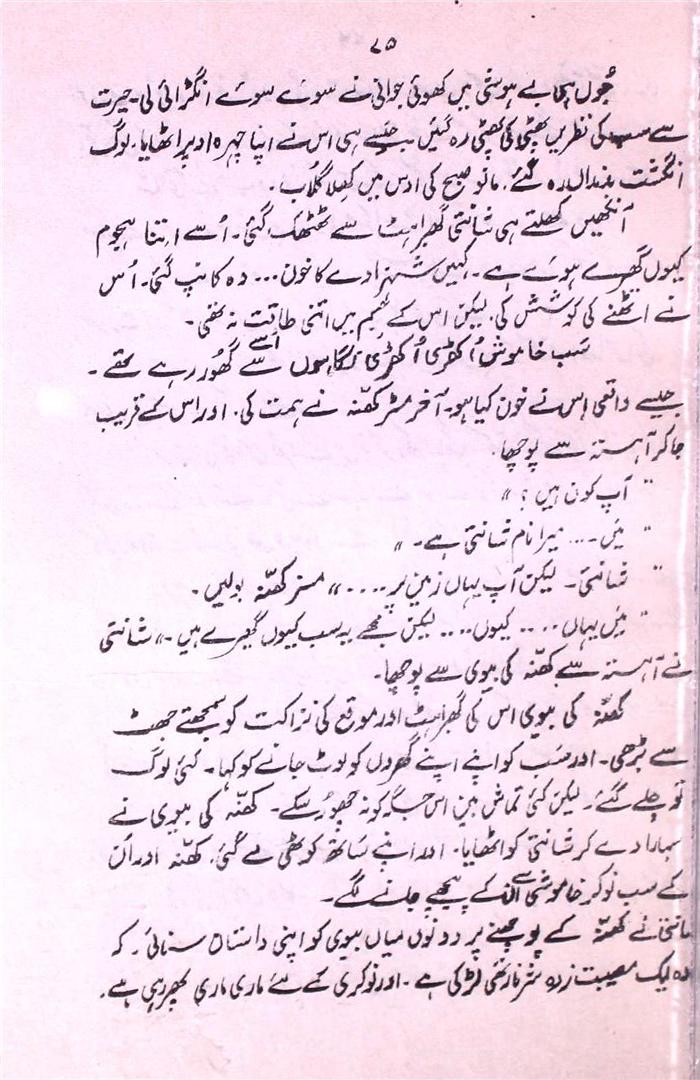 ۷۵
جُوں ہی بے ہوشی میں کھوئی جوانی نے سوئے سوئے انگڑائی لی۔ حیرت
سے سب کی نظریں پھٹی کی پھٹی رہ گئیں جیسے ہی اس نے اپنا چہرہ اوپر اٹھایا۔ لوگ
انگشت بدنداں رہ گئے۔ مانو صبح کی اوس میں کھِلا گُلاب۔
آنکھیں کھلتے ہی شانتی گھبراہٹ سے ٹھٹھک گئی۔ اُسے اتنا ہجوم
کیوں گھیرے ہوئے ہے۔ کہیں شہزادے کا خون... وہ کانپ گئی۔ اُس
نے اٹھنے کی کوشش کی۔ لیکن اس کے جسم میں اتنی طاقت نہ تھی۔
سَب خاموش اُکھڑی اُکھڑی نگاہوں سے اُسے گھُور رہے تھے۔
جیسے واقعی اس نے خون کیا ہو۔ آخر مسٹر کھنّہ نے ہمت کی۔ اور اس کے قریب
جا کر آہستہ سے پوچھا۔
"آپ کون ہیں؟"
"مَیں.... میرا نام شانتی ہے۔"
"شانتی۔ لیکن آپ یہاں زمین پر...." مسز کھنّہ بولیں۔
"مَیں یہاں.... کیوں.... لیکن مجھے یہ سب کیوں گھیرے ہیں۔" شانتی
نے آہستہ سے کھنّہ کی بیوی سے پوچھا۔
کھنّہ کی بیوی اس کی گھبراہٹ اور موقع کی نزاکت کو سمجھتے جھٹ
سے بڑھی۔ اور سَب کو اپنے اپنے گھروں کو لوٹ جانے کو کہا۔ کئی لوگ
تو چلے گئے۔ لیکن کئی تماش بین اس جگہ کو نہ چھوڑ سکے۔ کھنّہ کی بیوی نے
سہارا دے کر شانتی کو اٹھایا۔ اور اپنے سَاتھ کوٹھی لے گئی۔ کھنّہ اور اُن
کے سب نوکر خاموشی سے اُنکے پیچھے چلنے لگے۔
شانتی نے کھنّہ کے پوچھنے پر دونوں میاں بیوی کو اپنی داستان سنائی۔ کہ
وہ ایک مصیبت زدہ شرنارتھی لڑکی ہے۔ اور نوکری کے لئے ماری ماری پھر رہی ہے۔